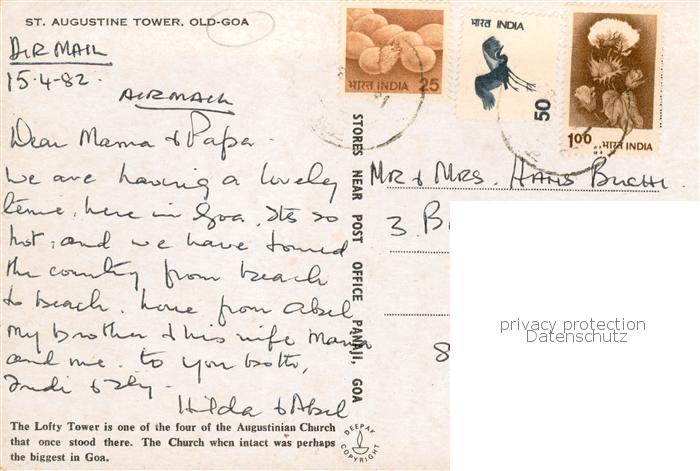 ST. AUGUSTINE TOWER, OLD-GOA
AIR MAIL
15-4-82.
AIRMAIL
Dear Mama & Papa -
We are having a lovely
time, here in Goa. Its so
hot, and we have toured
the country from beach
to beach. Love from Abel
my brother & his wife Maria
and me. to you both,
Hilda & Abel
The Lofty Tower is one of the four of the Augustinian Church
that once stood there. The Church when intact was perhaps
the biggest in Goa.
STORES NEAR POST OFFICE PANAJI, GOA
DEEPAK
COPYRIGHT
भारत INDIA 25
भारत INDIA
50
1.00 भारत INDIA
Mr & Mrs. Hans
3. B
8
privacy protection
Datenschutz